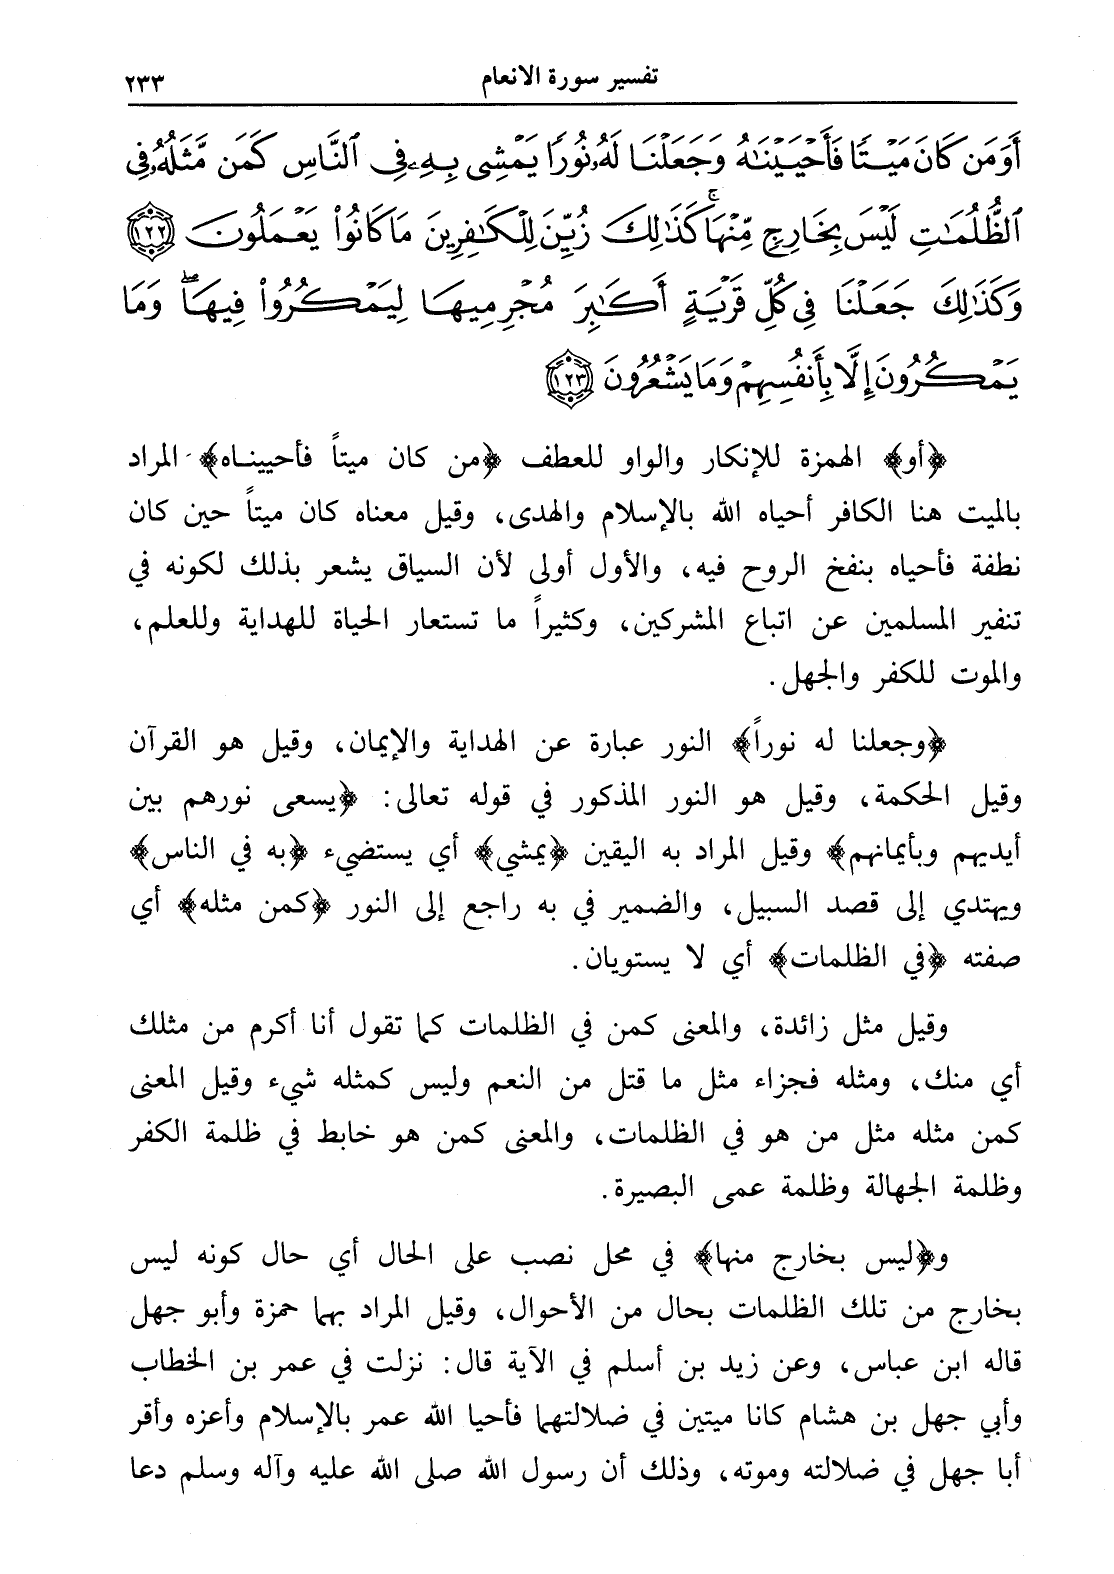 تفسير سورة الانعام
٢٣٣
أَوَمَن كَانَ مَيْتًا فَأَحْيَيْنَٰهُ وَجَعَلْنَا لَهُۥ نُورًا يَمْشِى بِهِۦ فِى ٱلنَّاسِ كَمَن مَّثَلُهُۥ فِى
ٱلظُّلُمَٰتِ لَيْسَ بِخَارِجٍ مِّنْهَا ۚ كَذَٰلِكَ زُيِّنَ لِلْكَٰفِرِينَ مَا كَانُوا۟ يَعْمَلُونَ ١٢٢
وَكَذَٰلِكَ جَعَلْنَا فِى كُلِّ قَرْيَةٍ أَكَٰبِرَ مُجْرِمِيهَا لِيَمْكُرُوا۟ فِيهَا ۖ وَمَا
يَمْكُرُونَ إِلَّا بِأَنفُسِهِمْ وَمَا يَشْعُرُونَ ١٢٣
﴿أو﴾ الهمزة للإنكار والواو للعطف ﴿من كان ميتاً فأحييناه﴾ المراد
بالميت هنا الكافر أحياه الله بالإسلام والهدى، وقيل معناه كان ميتاً حين كان
نطفة فأحياه بنفخ الروح فيه، والأول أولى لأن السياق يشعر بذلك لكونه في
تنفير المسلمين عن اتباع المشركين، وكثيراً ما تستعار الحياة للهداية وللعلم،
والموت للكفر والجهل.
﴿وجعلنا له نوراً﴾ النور عبارة عن الهداية والإيمان، وقيل هو القرآن
وقيل الحكمة، وقيل هو النور المذكور في قوله تعالى: ﴿يسعى نورهم بين
أيديهم وبأيمانهم﴾ وقيل المراد به اليقين ﴿يمشي﴾ أي يستضيء ﴿به في الناس﴾
ويهتدي إلى قصد السبيل، والضمير في به راجع إلى النور ﴿كمن مثله﴾ أي
صفته ﴿في الظلمات﴾ أي لا يستويان.
وقيل مثل زائدة، والمعنى كمن في الظلمات كما تقول أنا أكرم من مثلك
أي منك، ومثله فجزاء مثل ما قتل من النعم وليس كمثله شيء وقيل المعنى
كمن مثله مثل من هو في الظلمات، والمعنى كمن هو خابط في ظلمة الكفر
وظلمة الجهالة وظلمة عمى البصيرة.
و﴿ليس بخارج منها﴾ في محل نصب على الحال أي حال كونه ليس
بخارج من تلك الظلمات بحال من الأحوال، وقيل المراد بهما حمزة وأبو جهل
قاله ابن عباس، وعن زيد بن أسلم في الآية قال: نزلت في عمر بن الخطاب
وأبي جهل بن هشام كانا ميتين في ضلالتهما فأحيا الله عمر بالإسلام وأعزه وأقر
أبا جهل في ضلالته وموته، وذلك أن رسول الله صلى الله عليه وآله وسلم دعا